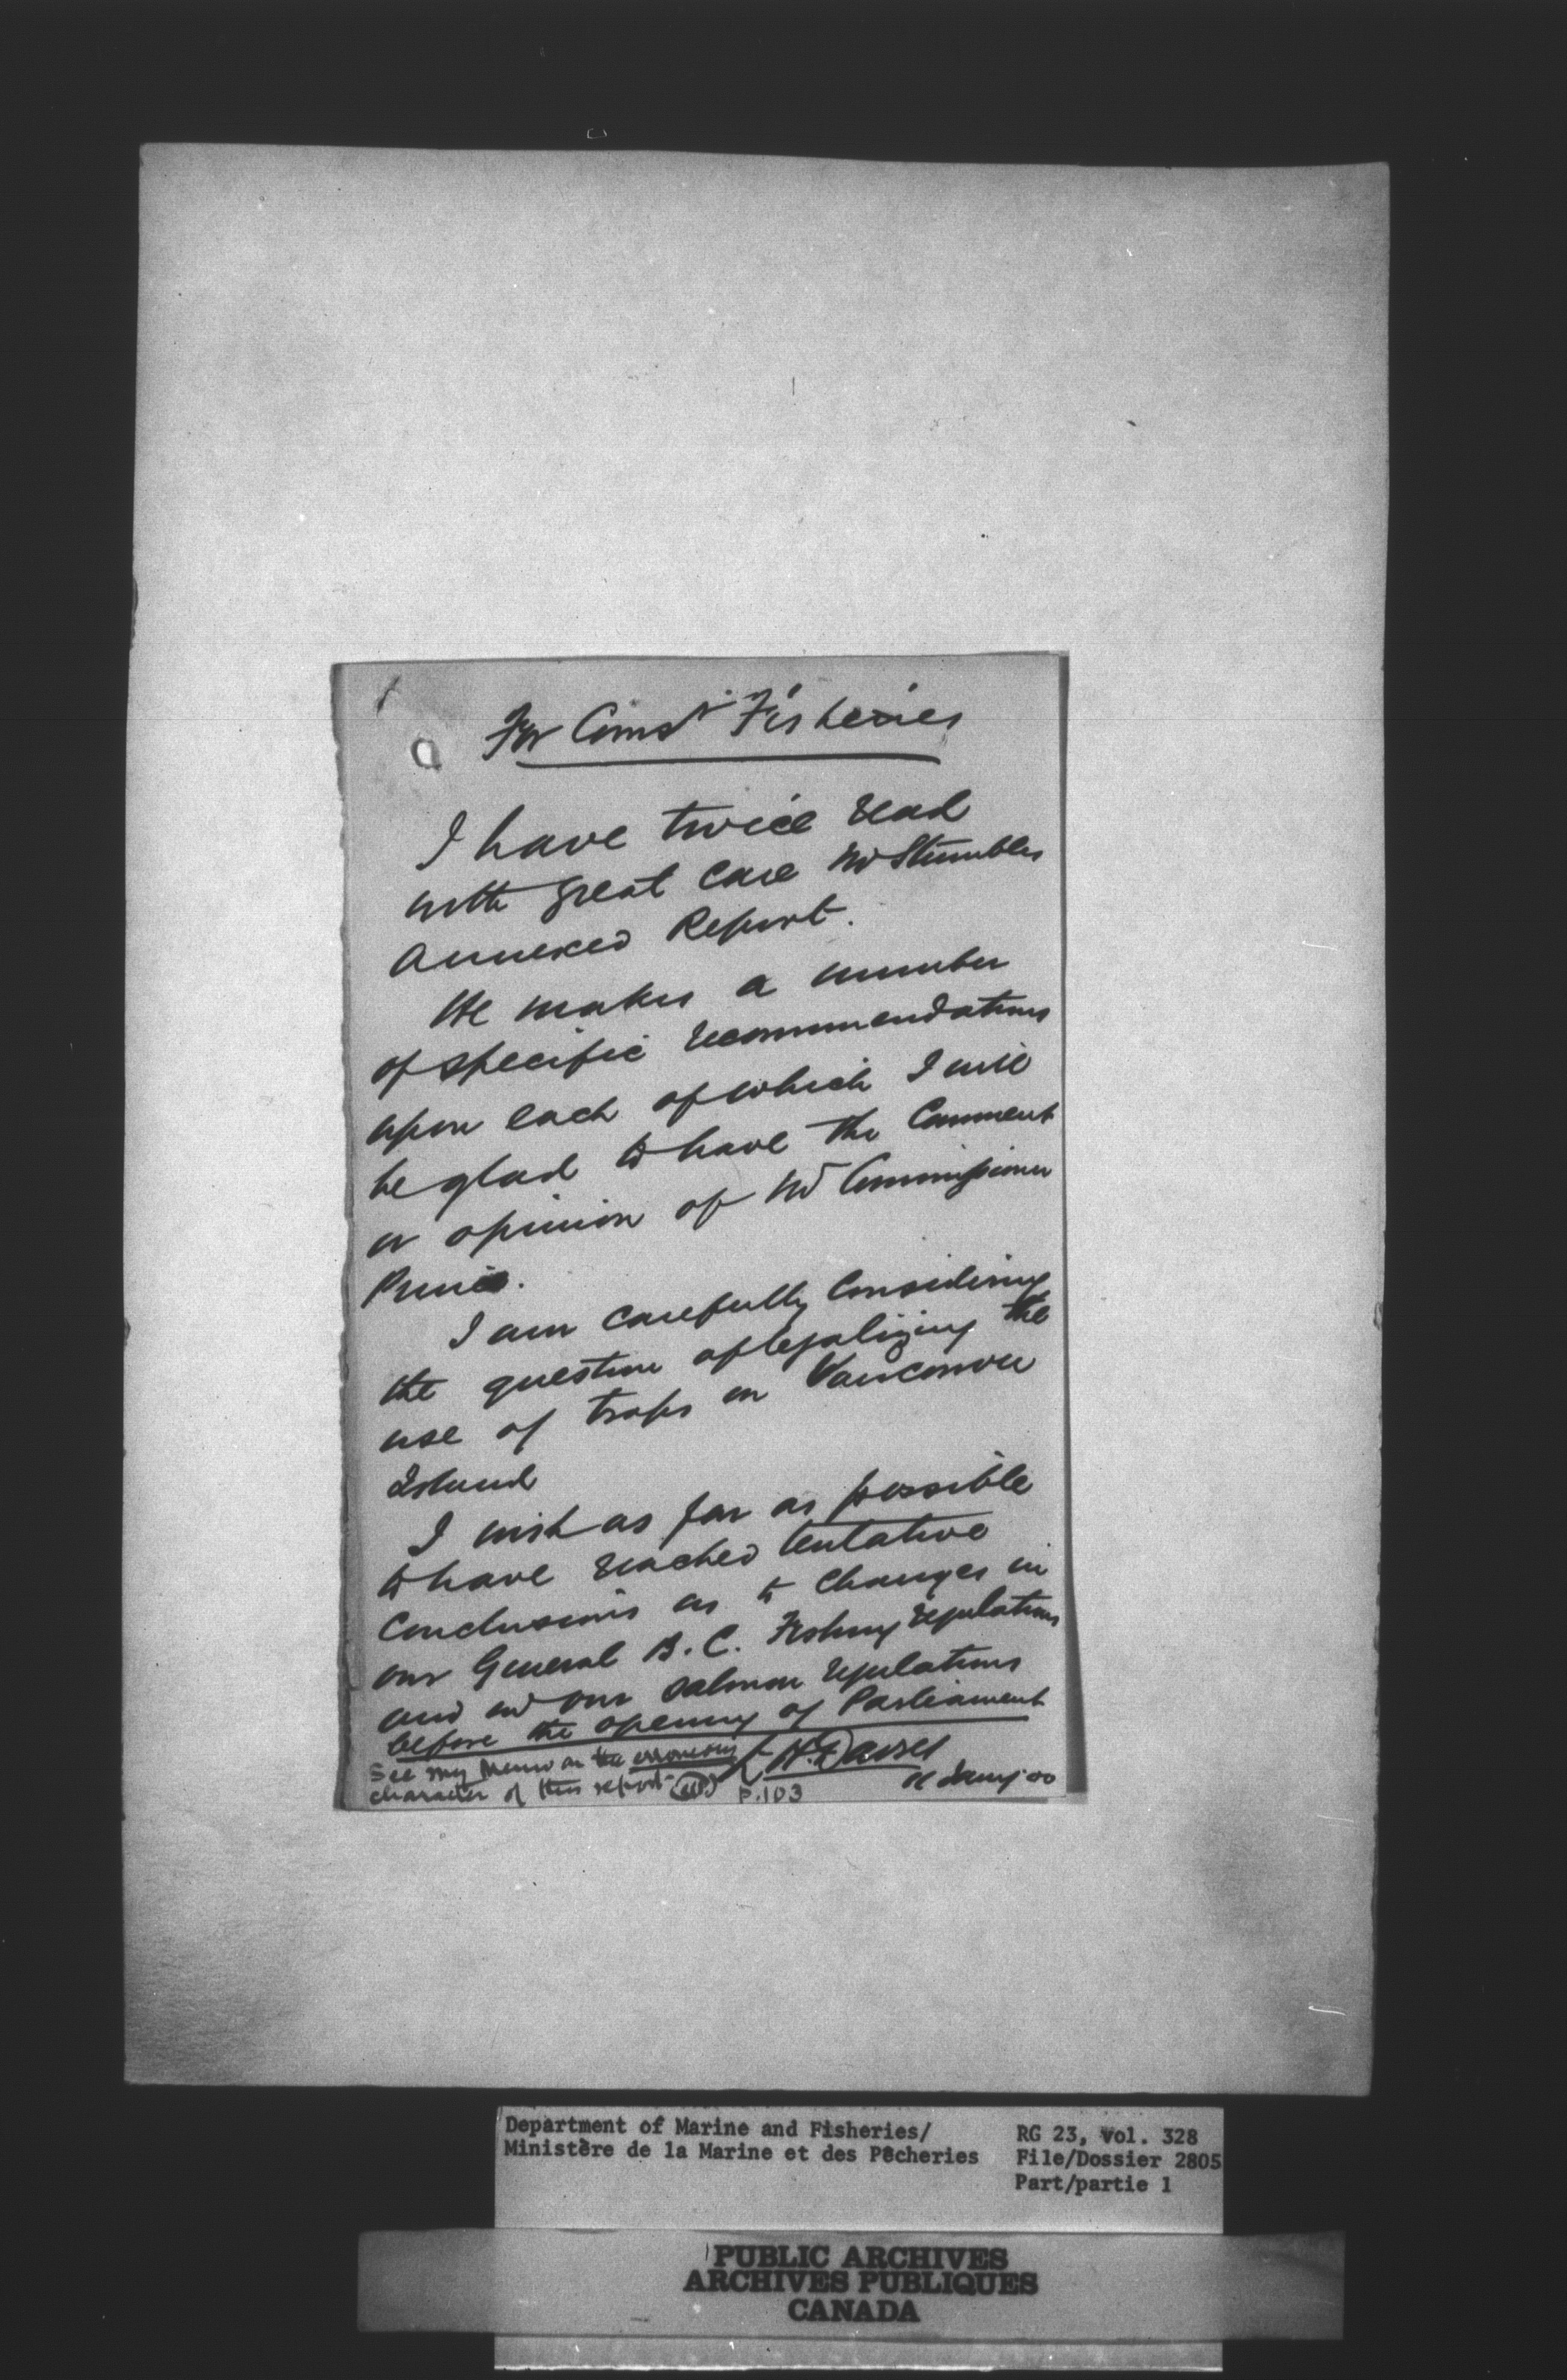 For Comsr Fisheries
I have twice read
with great care Mr Stumbles
annexed Report.
He makes a number
of specific recommendations
upon each of which I will
be glad to have the Comment
or opinion of Mr Commissioner
Prince.
I am carefully Considering
the question of legalizing the
use of traps on Vancouver
Island
I wish as far as possible
to have reached tentative
Conclusions as to Changes in
our General B.C. Fishing regulations
and in our salmon regulations
before the opening of Parliament
L. H. Davies
Jany 00
See my memo on the erroneous
character of this report
P.103
Department of Marine and Fisheries/
Ministère de la Marine et des Pêcheries
RG 23, Vol. 328
File/Dossier 2805
Part/partie 1
PUBLIC ARCHIVES
ARCHIVES PUBLIQUES
CANADA